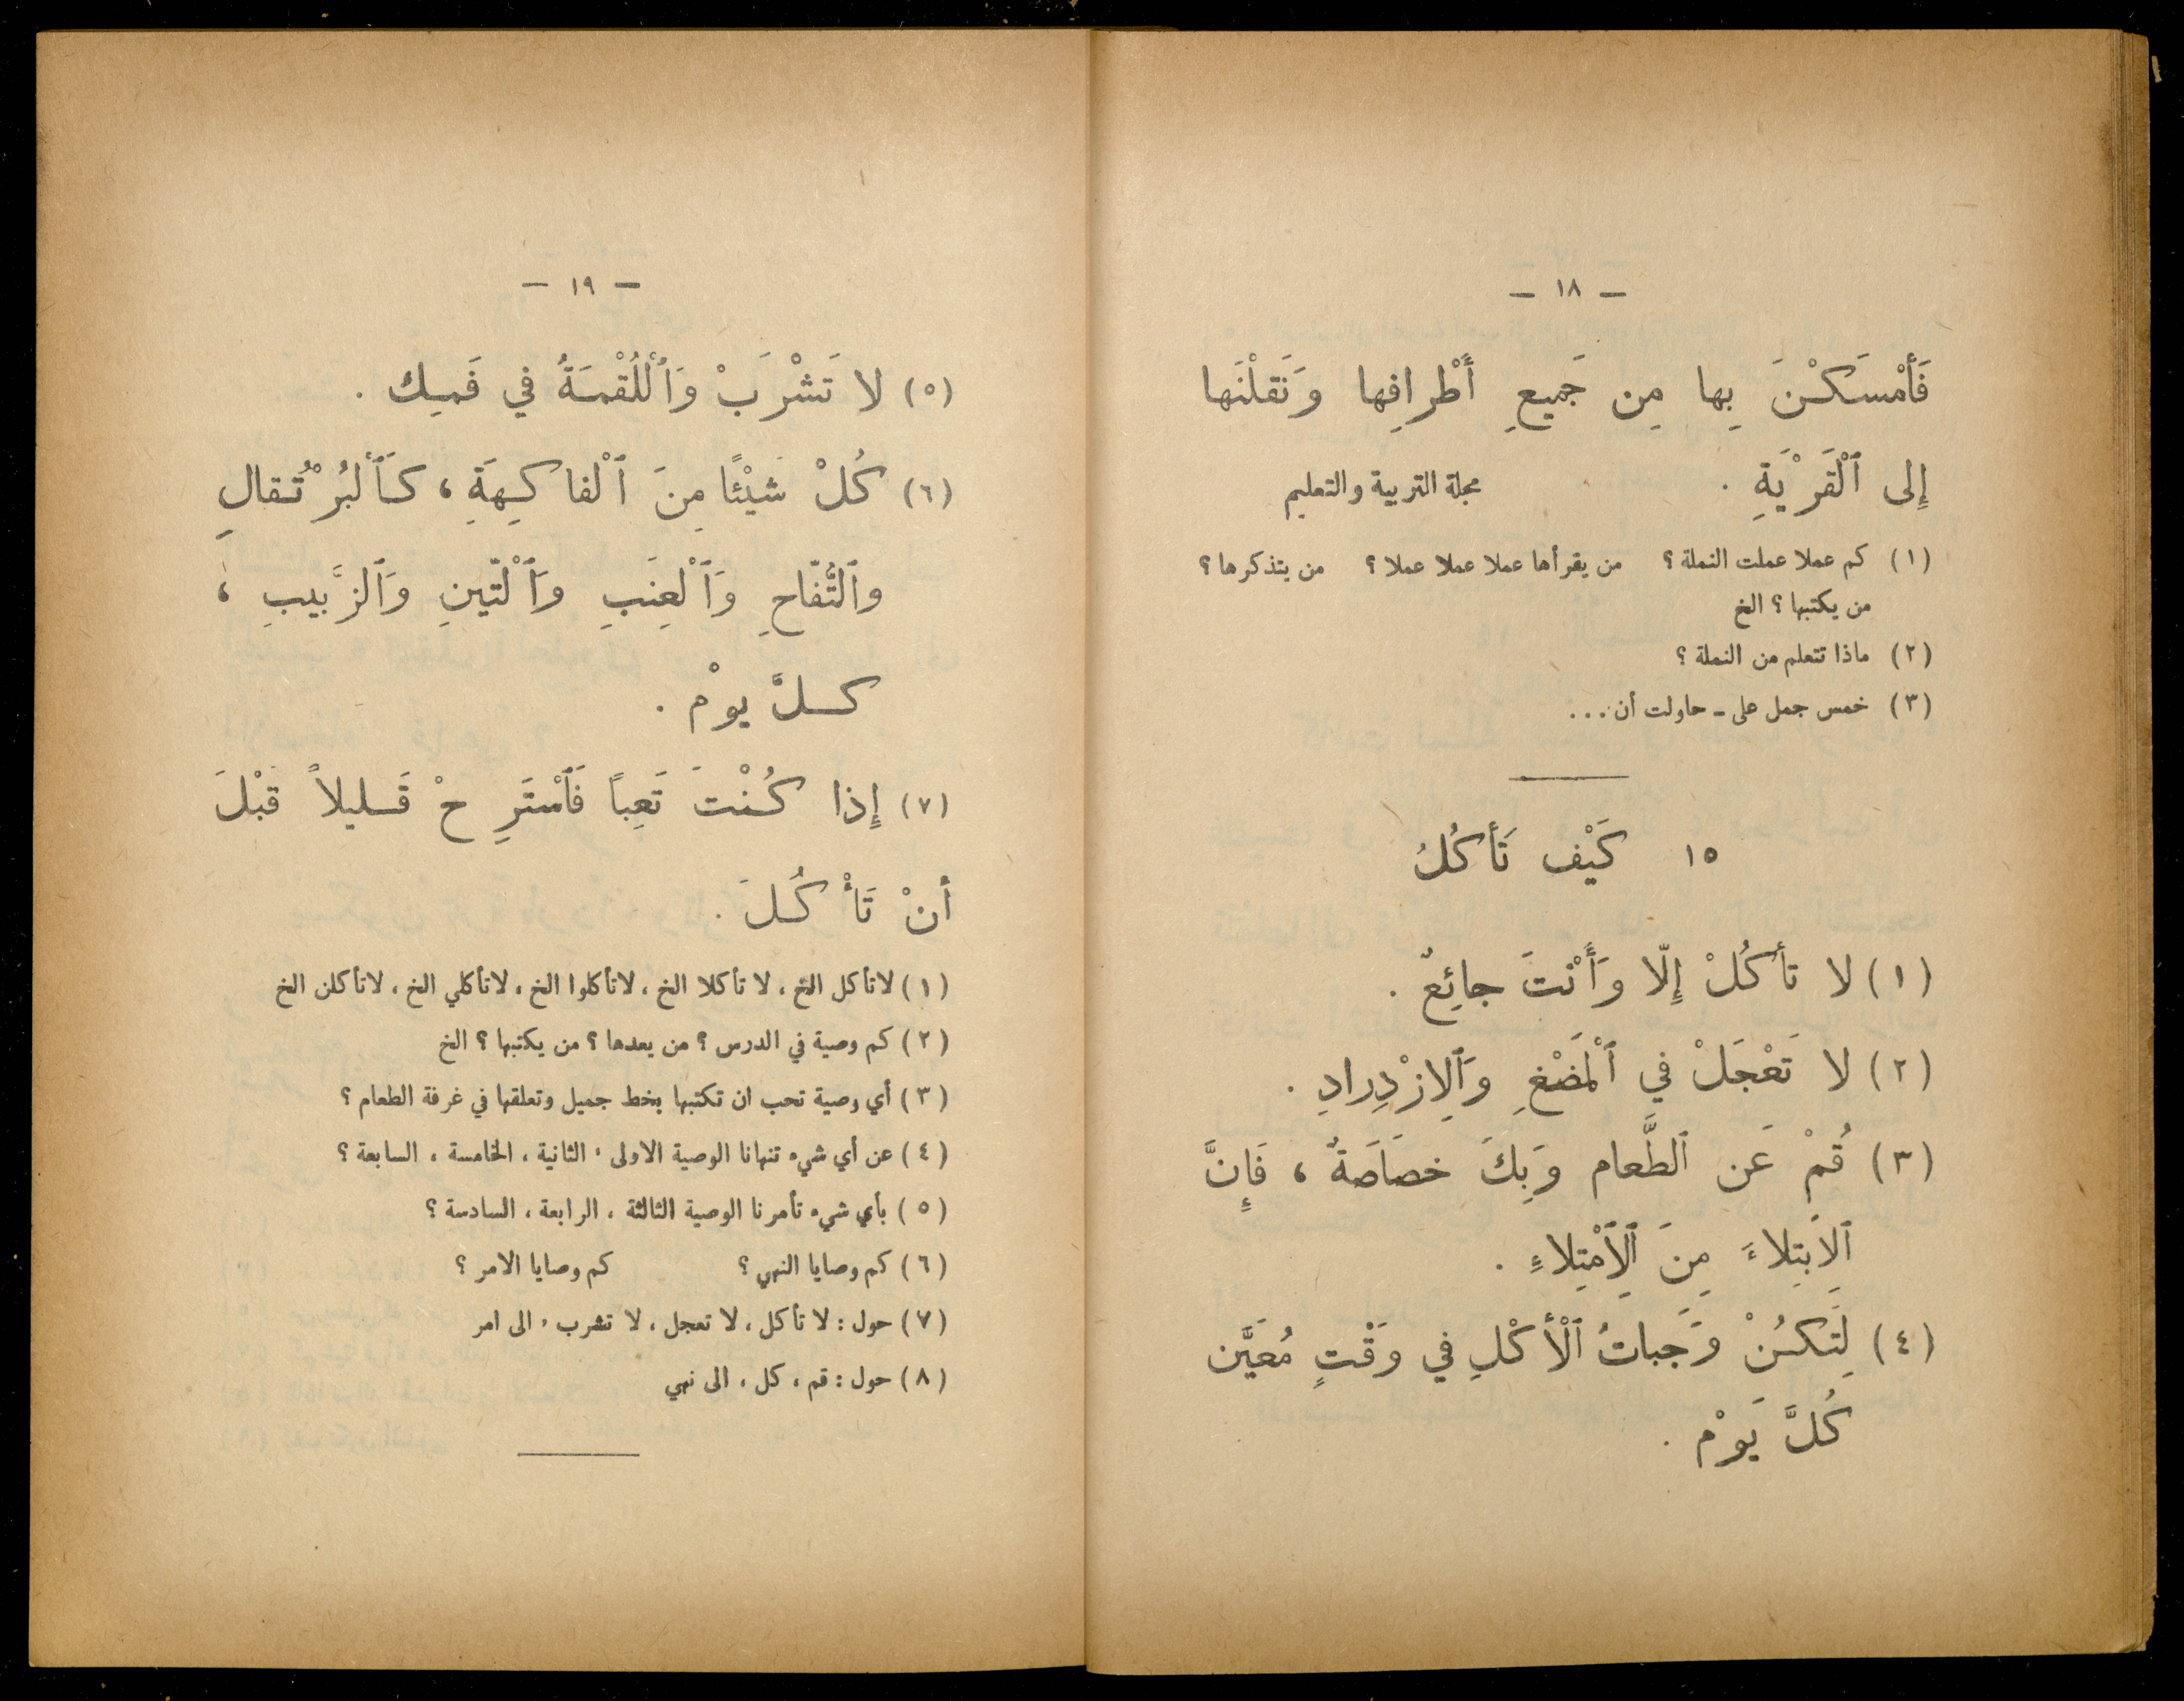 — ١٨ —
فَأَمْسَكْنَ بِها مِن جَميعِ أَطْرافِها وَنَقلْنَها
إِلى ٱلْقَرْيَةِ . مجلة التربية والتعليم
(١) كم عملا عملت النملة ؟ من يقرأها عملا عملا عملا ؟ من يتذكرها ؟
من يكتبها ؟ الخ
(٢) ماذا تتعلم من النملة ؟
(٣) خمس جمل على ـ حاولت أن ...
١٥ كَيْف تَأكُلُ
(١) لا تأكُلْ إِلّا وَأَنْتَ جائِعٌ .
(٢) لا تَعْجَلْ في ٱلْمَضْغِ وَٱلِازْدِرادِ .
(٣) قُمْ عَن ٱلطَّعام وَبِكَ خصَاصَةٌ ، فَإِنَّ
ٱلِابتِلاءَ مِنَ ٱلِامْتِلاءِ .
(٤) لِتَكُنْ وَجَباتُ ٱلْأكْلِ في وَقْتٍ مُعَيَّن
كُلَّ يَوْم .
— ١٩ —
(٥) لا تَشْرَبْ وَٱلْلُقْمَةُ في فَميك .
(٦) كُلْ شَيْئًا مِنَ ٱلْفاكِهَةِ ، كَٱلْبُرْتُقالِ
وٱلتُّفّاحِ وَٱلْعِنَبِ وَٱلْتّينِ وَٱلزَّبيبِ ،
كلَّ يوْم .
(٧) إِذا كُنْتَ تَعِباً فَٱسْتَرِحْ قَليلاً قبْلَ
أنْ تَأْكُلَ .
(١) لاتأكل الخ ، لا تأكلا الخ ، لاتأكلوا الخ ، لاتأكلي الخ ، لاتأكلن الخ
(٢) كم وصية في الدرس ؟ من يعدها ؟ من يكتبها ؟ الخ
(٣) أي وصية تحب ان تكتبها بخط جميل وتعلقها في غرفة الطعام ؟
(٤) عن أي شيء تنهانا الوصية الاولى ، الثانية ، الخامسة ، السابعة ؟
(٥) بأي شيء تأمرنا الوصية الثالثة ، الرابعة ، السادسة ؟
(٦) كم وصايا النهي ؟ كم وصايا الامر ؟
(٧) حول : لا تأكل ، لا تعجل ، لا تشرب ، الى امر
(٨) حول : قم ، كل ، الى نهي